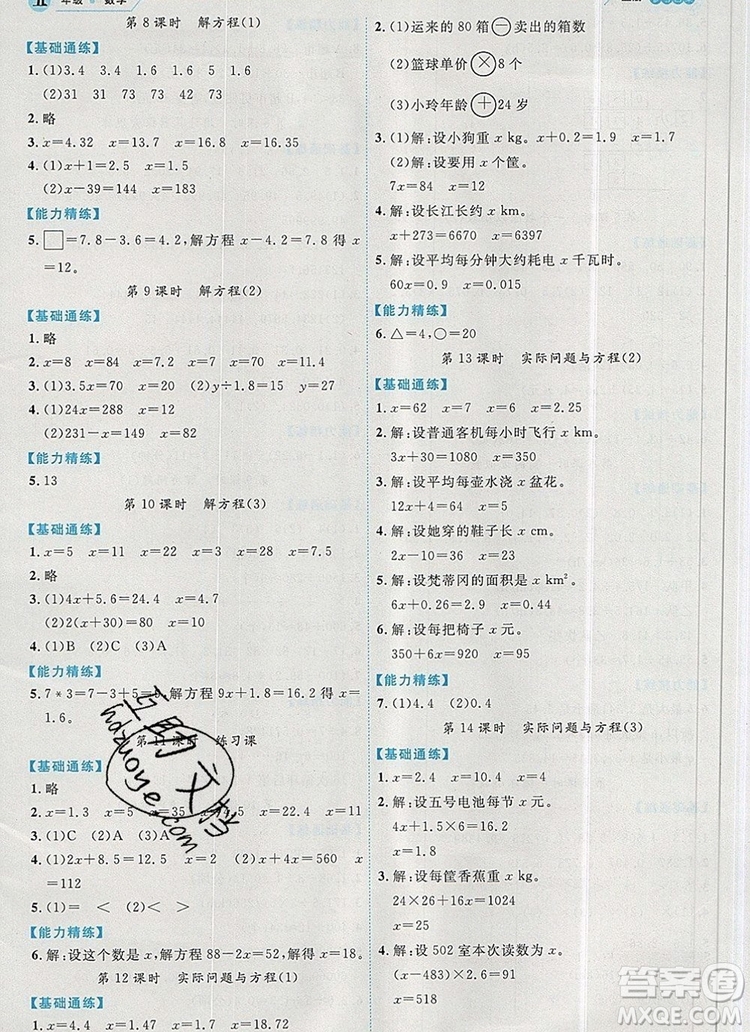 五年级·数学
第8课时 解方程(1)
【基础通练】
1.(1)3.4 3.4 1.6 1.6 5 1.6
(2)31 31 73 42 73
2.略
3.x=4.32 x=13.7 x=16.8 x=16.35
4.(1)x+1=2.5 x=1.5
(2)x-39=144 x=183
【能力精练】
5.□=7.8-3.6=4.2,解方程 x-4.2=7.8 得 x
=12。
第9课时 解方程(2)
【基础通练】
1.略
2.x=8 x=84 x=2 x=7 x=70 x=31
3.(1)3.5x=70 x=20 (2)y÷1.8=15 y=27
4.(1)24x=288 x=12
(2)231-x=149 x=82
【能力精练】
5.13
第10课时 解方程(3)
【基础通练】
1.x=5 x=11 x=22 x=3 x=28 x=7.5
2.略
3.(1)4x+5.6=24.4 x=4.7
(2)30x÷2=1200 x=80
4.(1)B (2)C (3)A
【能力精练】
5.7*3=7-3+5=9,解方程 9x+1.8=16.2 得 x=
1.6。
第11课时 练习课
【基础通练】
1.略
2.x=1.3 x=5 x=35 x=13.5 x=22.4 x=11
3.(1)C (2)A (3)A
4.(1)2x+8.4=13.4 x=2.5 (2)x+4x=560 x
=112
5.(1)= < (2)< >
【能力精练】
6.解:设这个数是 x,解方程 88-2x=52,解得 x=18。
第12课时 实际问题与方程(1)
【基础通练】
1.x=0.9 x=4.5 x=9.43 x=1 x=18.72
2.(1)运来的 80 箱 - 卖出的箱数
(2)篮球单价 × 8 个
(3)小玲年龄 + 24 岁
3.(1)解:设小狗重 x kg。 x+0.2=1.9 x=1.7
(2)解:设要用 x 个筐。
7x=84 x=12
4.解:设长江长约 x km。
x+273=6670 x=6397
5.解:设平均每分钟大约耗电 x 千瓦时。
60x=0.9 x=0.015
【能力精练】
6.△=4,○=20
第13课时 实际问题与方程(2)
【基础通练】
1.x=62 x=7 x=6 x=2.25
2.解:设普通客机每小时飞行 x km。
3x+30=1080 x=350
3.解:设平均每壶水浇 x 盆花。
12x+4=64 x=5
4.解:设她穿的鞋子长 x cm。
2x-10=36 x=23
5.解:设梵蒂冈的面积是 x km²。
6x+0.26=2.9 x=0.44
6.解:设每把椅子 x 元。
350+6x=920 x=95
【能力精练】
7.(1)4.4 (2)0.4
第14课时 实际问题与方程(3)
【基础通练】
1.x=2.4 x=6 x=4 x=0.3
2.解:设五号电池每节 x 元。
4x+1.8×5=16.2
x=1.8
3.解:设每筐香蕉重 x kg。
24×26+16x=1024
x=25
4.解:设 502 室本次读数为 x 吨。
(x-483)×2.6=91
x=518
互助文档
hdzuoye.com
答案圈
MXQE.COM